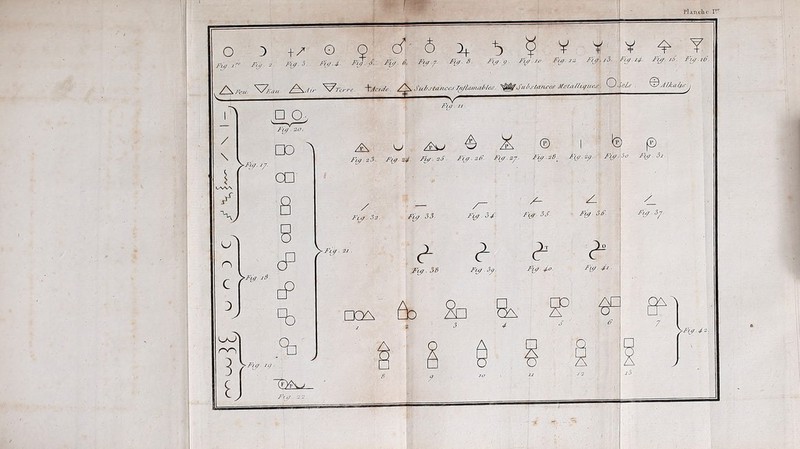 Planche I.re
Fig. 1.re Fig. 2. Fig. 3. Fig. 4. Fig. 5. Fig. 6. Fig. 7. Fig. 8. Fig. 9. Fig. 10 Fig. 12 Fig. 13. Fig. 14. Fig. 15. Fig. 16.
Feu Eau Air Terre Acide Substances Inflamables Substances Metalliques Sels Alkalys
Fig. 11
Fig. 20.
P P P P P P P
Fig. 23. Fig. 24 Fig. 25. Fig. 26. Fig. 27. Fig. 28. Fig. 29. Fig. 30 Fig. 31
Fig. 17.
Fig. 32 Fig. 33 Fig. 34 Fig. 35 Fig. 36 Fig. 37
Fig. 21
Fig. 38 Fig. 39 Fig. 40 Fig. 41
Fig. 18.
1 2 3 4 5 6 7
Fig. 42
Fig. 19
8 9 10 11 12 13
Fig. 22